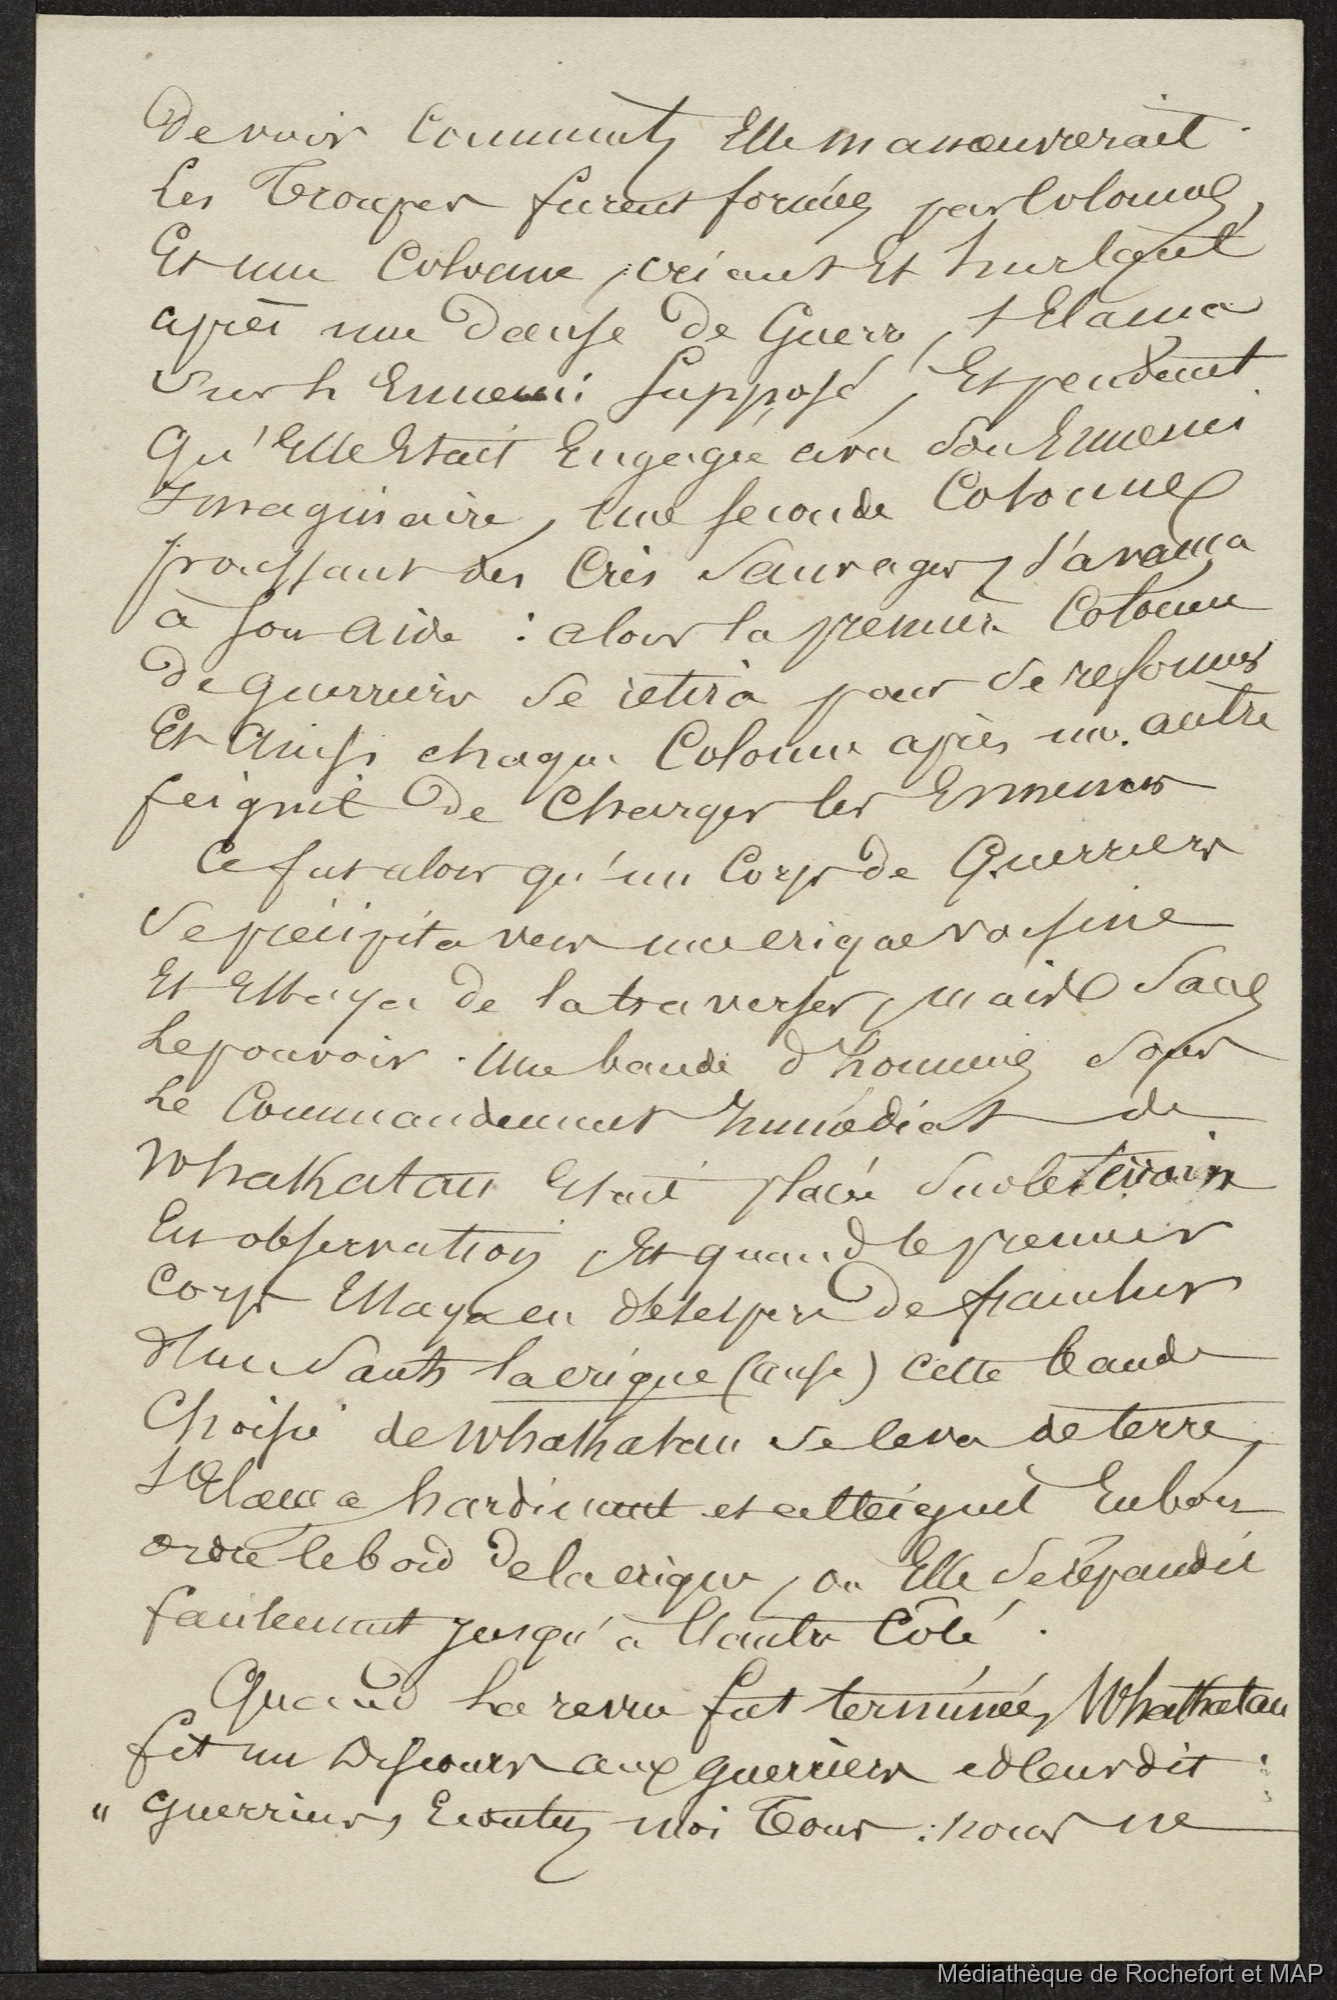 De voir Comment Elle manœuvrerait.
Les Troupes furent formées par Colonnes,
Et une Colonne, criant Et hurlant
après une Danse De Guerre, s'Elança
sur L'Ennemi Supposé, Et pendant
Qu'Elle Etait Engagée avec son Ennemi
Imaginaire, une seconde Colonne
poussant des Cris Sauvages, s'avança
à son aide : alors la première Colonne
De guerriers se retira pour se reformer
Et Ainsi chaque Colonne après une autre
feignit De Charger les Ennemis
Ce fut alors qu'un Corps de Guerriers
Se précipita vers une crique voisine
Et Essaya de la traverser, mais Sans
Le pouvoir. Une bande d'hommes sous
Le Commandement Immédiat de
Whakatau Etait placée sur le terrain
En observation, Et quand le premier
Corps Essaya en désespéré De franchir
d'un saut la crique (anse) Cette bande
Choisie de Whakatau se leva de terre,
s'Elança hardiment et atteignit En bon
ordre le bord De la crique, où Elle se répandit
facilement jusqu'à l'autre Côté.
Quand La revue fut terminée, Whakatau
fit un Discours aux guerriers et leur dit :
" Guerriers, Ecoutez moi Tous : nous ne
Médiathèque de Rochefort et MAP